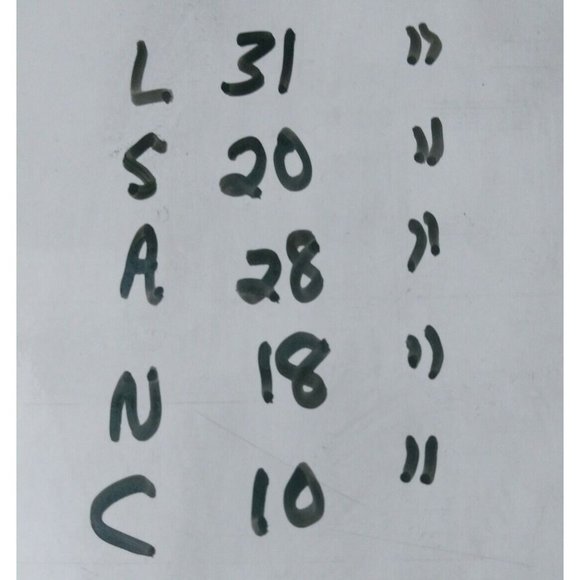 L 31 "
S 20 "
A 28 "
N 18 "
C 10 "